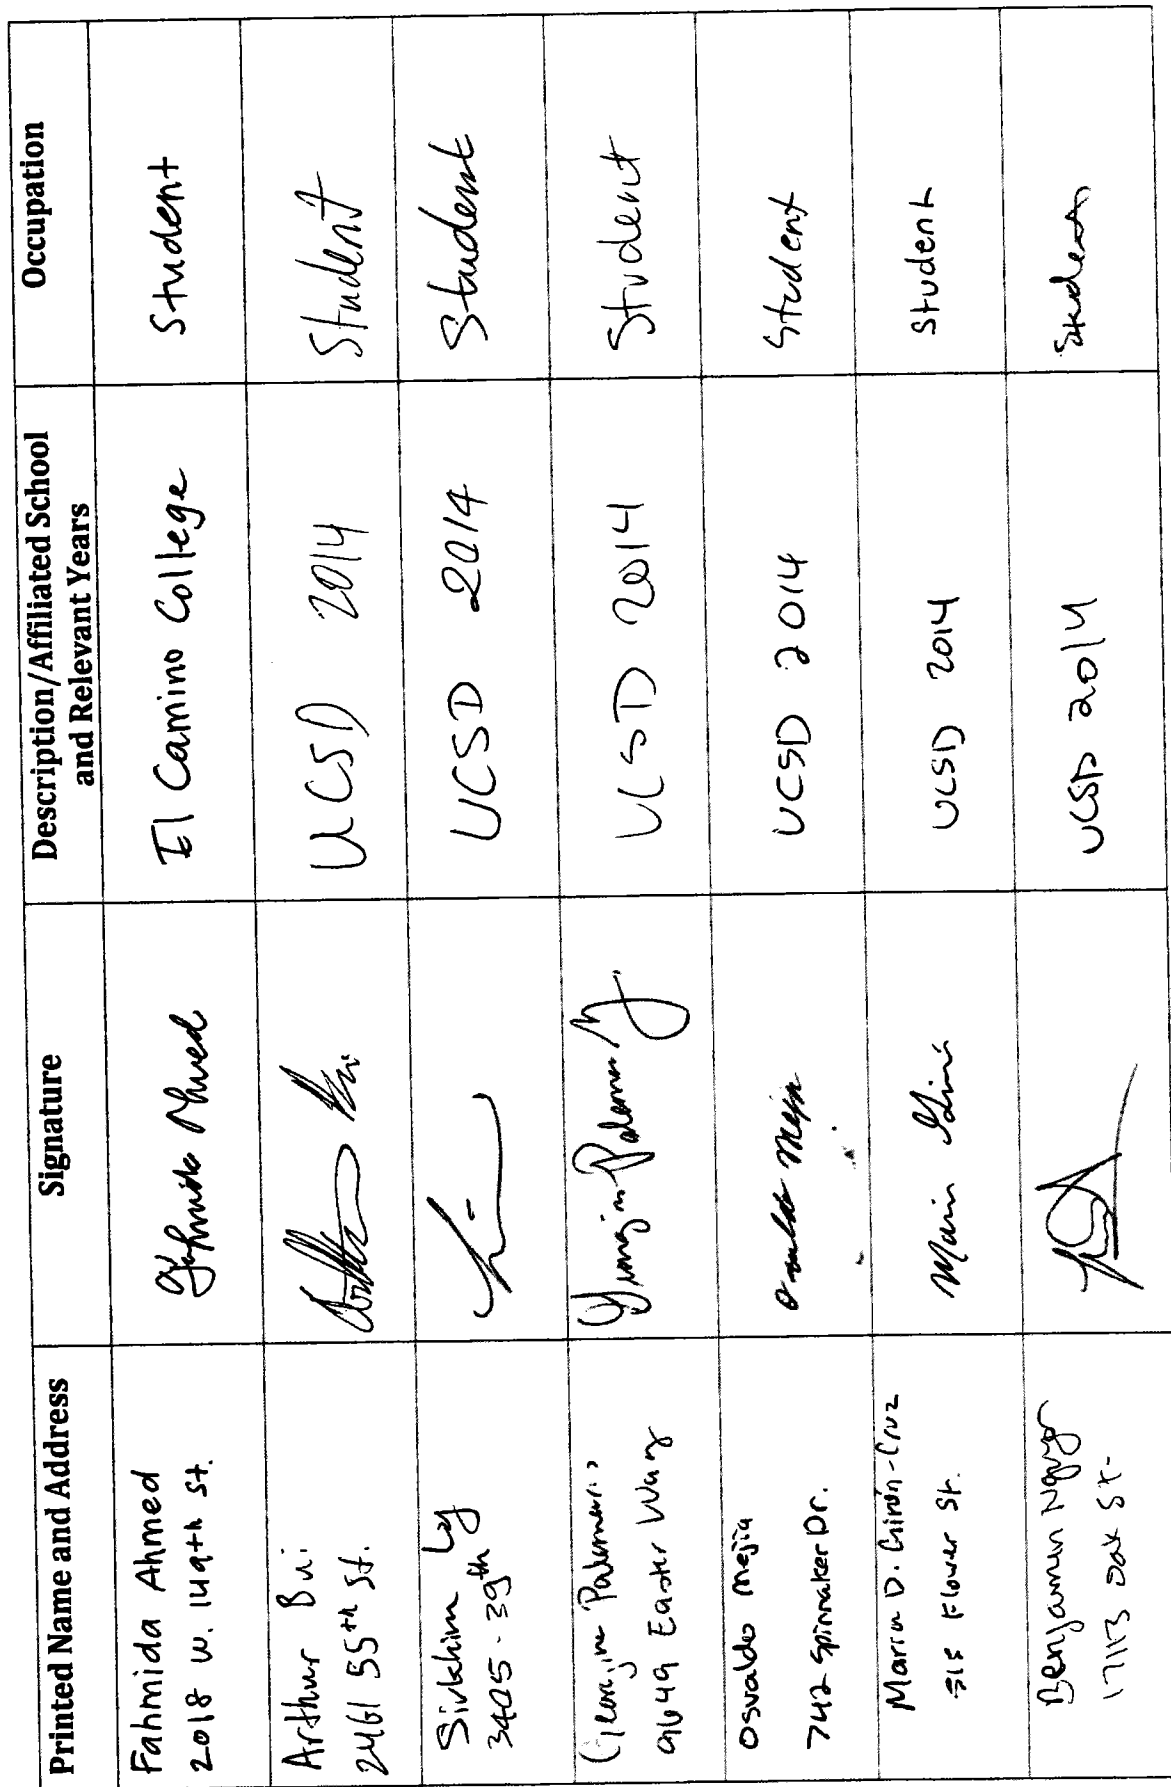 Printed Name and Address
Signature
Description/Affiliated School
and Relevant Years
Occupation
Fahmida Ahmed
2018 W. 149th St.
Fahmida Ahmed
El Camino College
Student
Arthur Bui
2461 55th St.
Arthur Bui
UCSD 2014
Student
Sivkhim Ly
3405 - 39th
UCSD 2014
Student
Georgina
9649 Easter Way
Georgina
UCSD 2014
Student
Osvaldo Mejia
742 Spinnaker Dr.
Osvaldo Mejia
UCSD 2014
Student
D. Girón-Cruz
Flower St.
UCSD 2014
Student
Benjamin
1713 Oak St.
UCSD 2014
Student